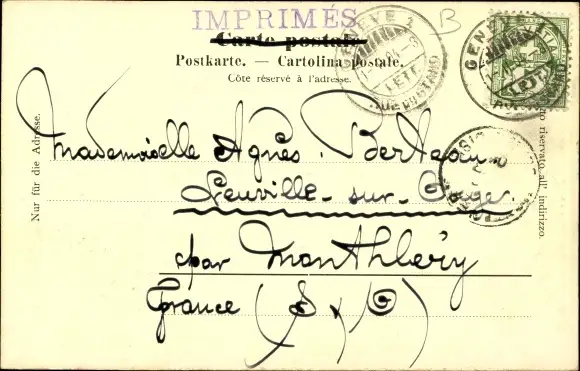 IMPRIMÉS
Carte postale
Postkarte. — Cartolina postale.
Côte réservé à l'adresse.
Nur für die Adresse.
riservato all' indirizzo.
B
GENÈVE 1
LETT.
GENÈVE 1
LETT.
Mademoiselle Agnès Berteau
Leuville-sur-Orge.
par Monthléry
France (S & O)